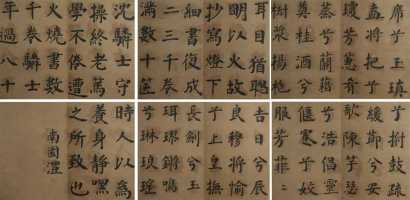 席兮玉瑱
盍將把兮
瓊芳蕙肴
蒸兮蘭藉
奠桂酒兮
椒漿揚枹
耳目猶聰
明以火故
抄寫燈下
細書復成
二三
滿數十篋
沈驎士守
操終老篤
學不倦遭
火燒書數
千卷驎士
年過八十
兮拊鼓疏
緩節兮安
歌陳竽瑟
兮浩倡靈
偃蹇兮姣
服芳菲〻
吉日兮辰
良穆將愉
兮上皇撫
長劍兮玉
珥璆鏘鳴
兮琳琅瑤
時人以為
養身靜嘿
之所致也
南園澧